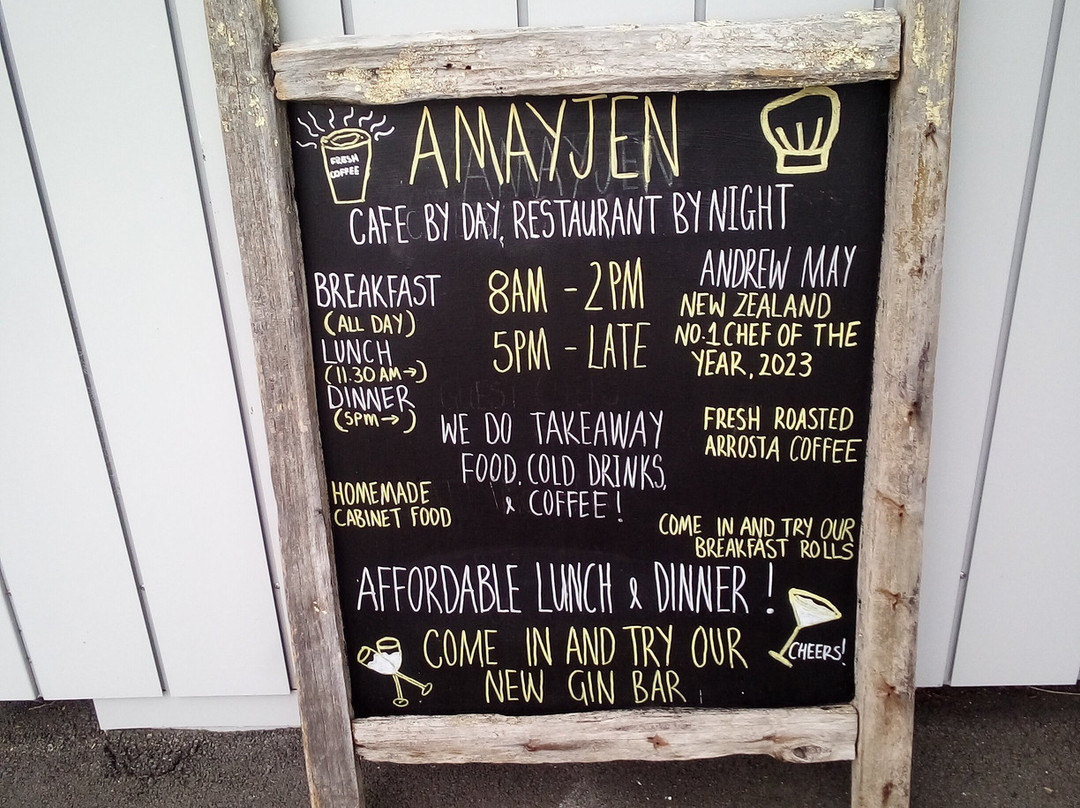 FRESH
COFFEE
AMAYJEN
CAFE BY DAY, RESTAURANT BY NIGHT
BREAKFAST
(ALL DAY)
LUNCH
(11.30 AM→)
DINNER
(5PM→)
8AM - 2PM
5PM - LATE
ANDREW MAY
NEW ZEALAND
NO.1 CHEF OF THE
YEAR, 2023
WE DO TAKEAWAY
FOOD, COLD DRINKS,
& COFFEE!
FRESH ROASTED
ARROSTA COFFEE
HOMEMADE
CABINET FOOD
COME IN AND TRY OUR
BREAKFAST ROLLS
AFFORDABLE LUNCH & DINNER!
COME IN AND TRY OUR
NEW GIN BAR
CHEERS!